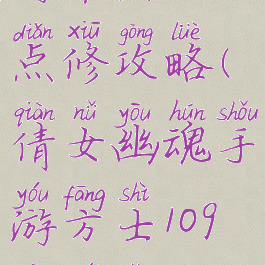 diǎn xiū gōng lüè
点修攻略(
qiàn nǚ yōu hún shǒu
倩女幽魂手
yóu fāng shì
游方士109